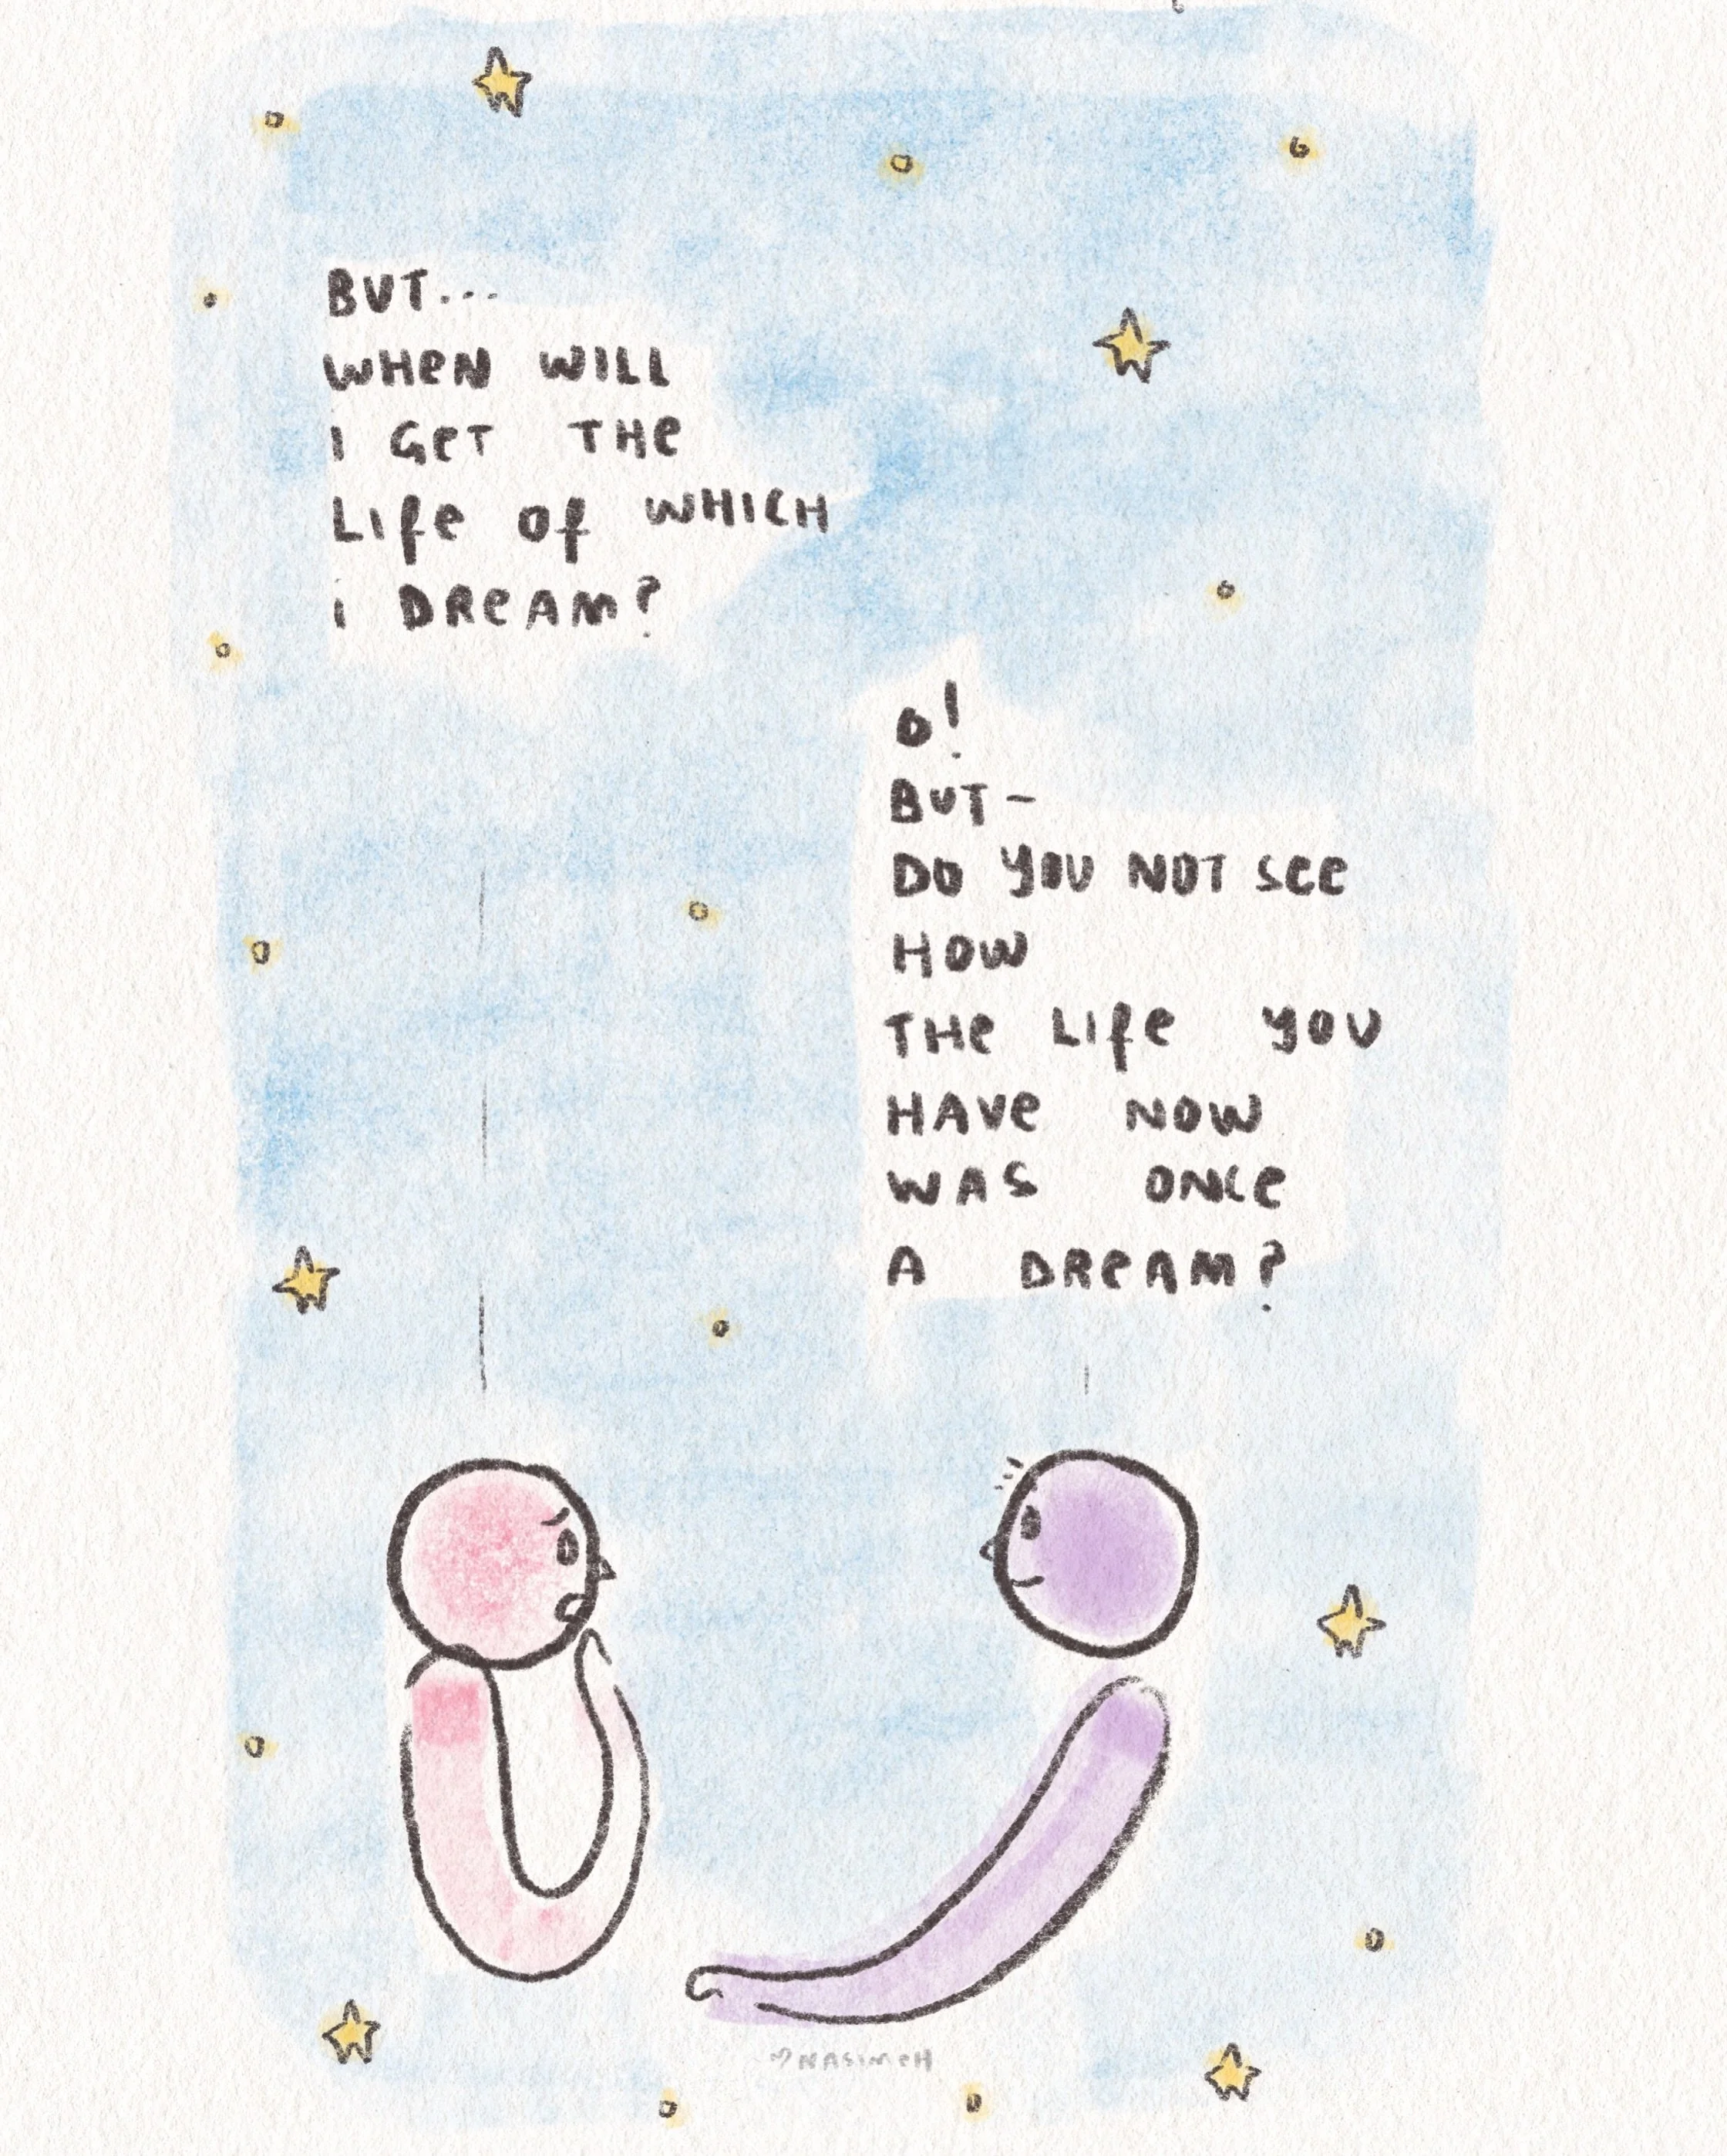 BUT...
WHEN WILL
I GET THE
LIFE OF WHICH
I DREAM?
O!
BUT-
DO YOU NOT SEE
HOW
THE LIFE YOU
HAVE NOW
WAS ONCE
A DREAM?
♡NASIMEH